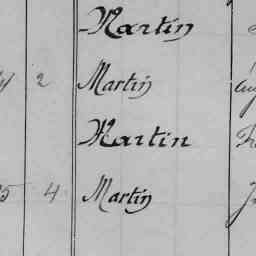 Martin
2 Martin
Martin
4 Martin